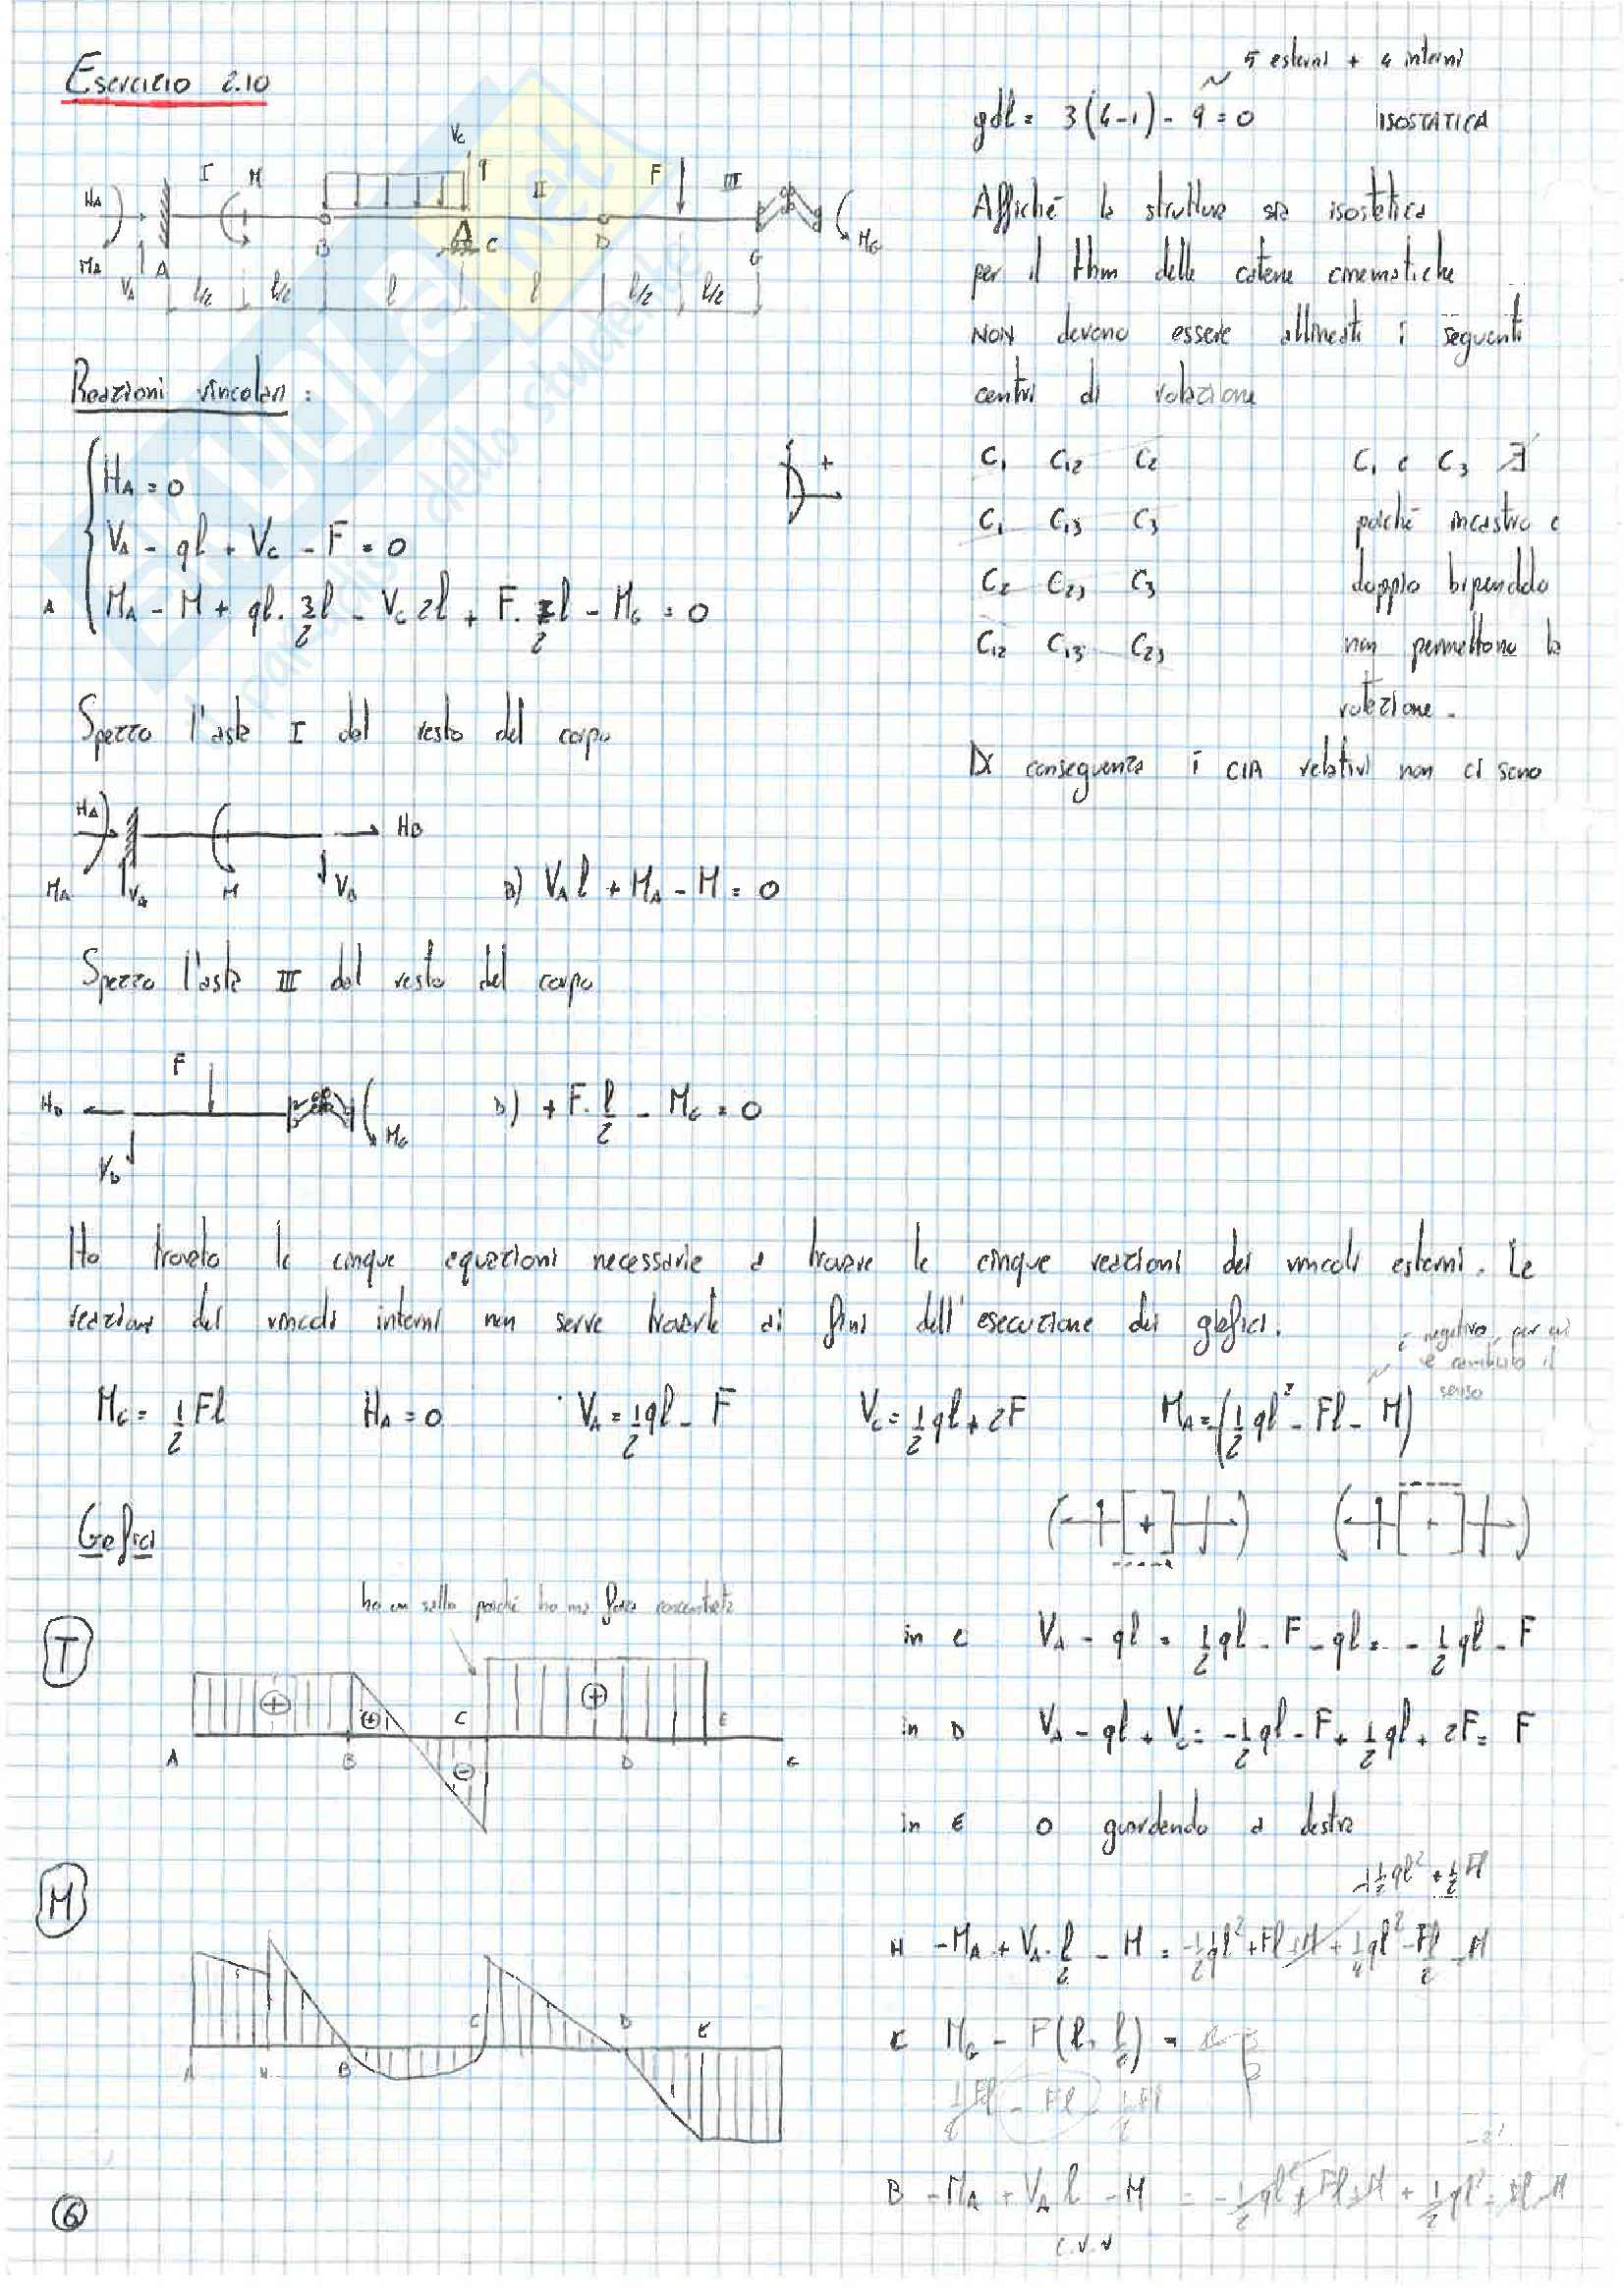 Esercizio 2.10
5 esterni + 4 interni
gdl = 3(4-1) - 9 = 0 ISOSTATICA
HA MA VA A I M B q VC C II D F III G MG
l/2 l/2 l l l/2 l/2
Affiché la struttura sia isostatica
per il thm delle catene cinematiche
NON devono essere allineati i seguenti
centri di rotazione
C1 C12 C2
C1 C13 C3
C2 C23 C3
C12 C13 C23
C1 e C3 ∄
poiché incastro e
doppio bipendolo
non permettono la
rotazione.
Di conseguenza i CIR relativi non ci sono
Reazioni vincolari:
HA = 0
VA - ql + VC - F = 0
A MA - M + ql · 3/2 l - VC 2l + F · 7/2 l - MG = 0
Spezzo l'asta I dal resto del corpo
HA MA VA M VB HB
B) VA l + MA - M = 0
Spezzo l'asta III dal resto del corpo
HD VD F MG
D) + F · l/2 - MG = 0
Ho trovato le cinque equazioni necessarie a trovare le cinque reazioni dei vincoli esterni. Le
reazioni dei vincoli interni non serve trovarle ai fini dell'esecuzione dei grafici.
è negativo, per cui
è cambiato il
senso
MG = 1/2 Fl HA = 0 VA = 1/2 ql - F VC = 1/2 ql + 2F MA = -(1/2 ql² - Fl - M)
Grafici
ho un salto poiché ho una forza concentrata
T
A B C D E G
in C VA - ql = 1/2 ql - F - ql = - 1/2 ql - F
in D VA - ql + VC = - 1/2 ql - F + 1/2 ql + 2F = F
in E 0 guardando a destra
M
A H B C D E
H - MA + VA · l/2 - M = - 1/2 ql² + Fl + M + 1/4 ql² - Fl/2 - M
MG - F(l + l/2) =
B - MA + VA l - M = - 1/2 ql² + Fl + M + 1/2 ql² - Fl - M
c.v.v
6